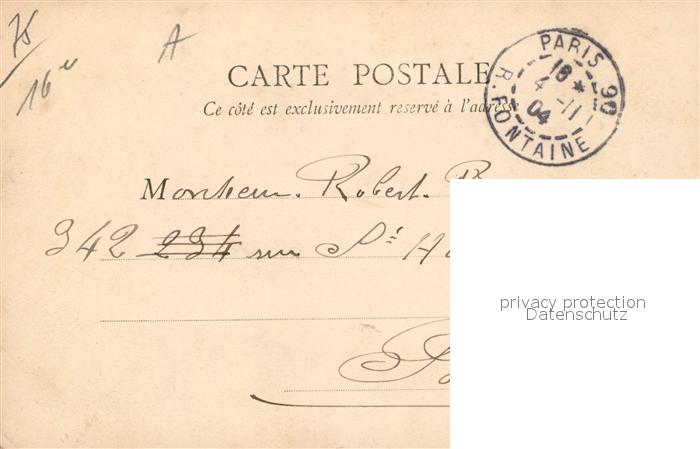 75
16e
A
CARTE POSTALE
Ce côté est exclusivement reservé à l'adresse
PARIS 90
18 *
4 -11
04
R. FONTAINE
Monsieur. Robert.
342 234 rue St
privacy protection
Datenschutz